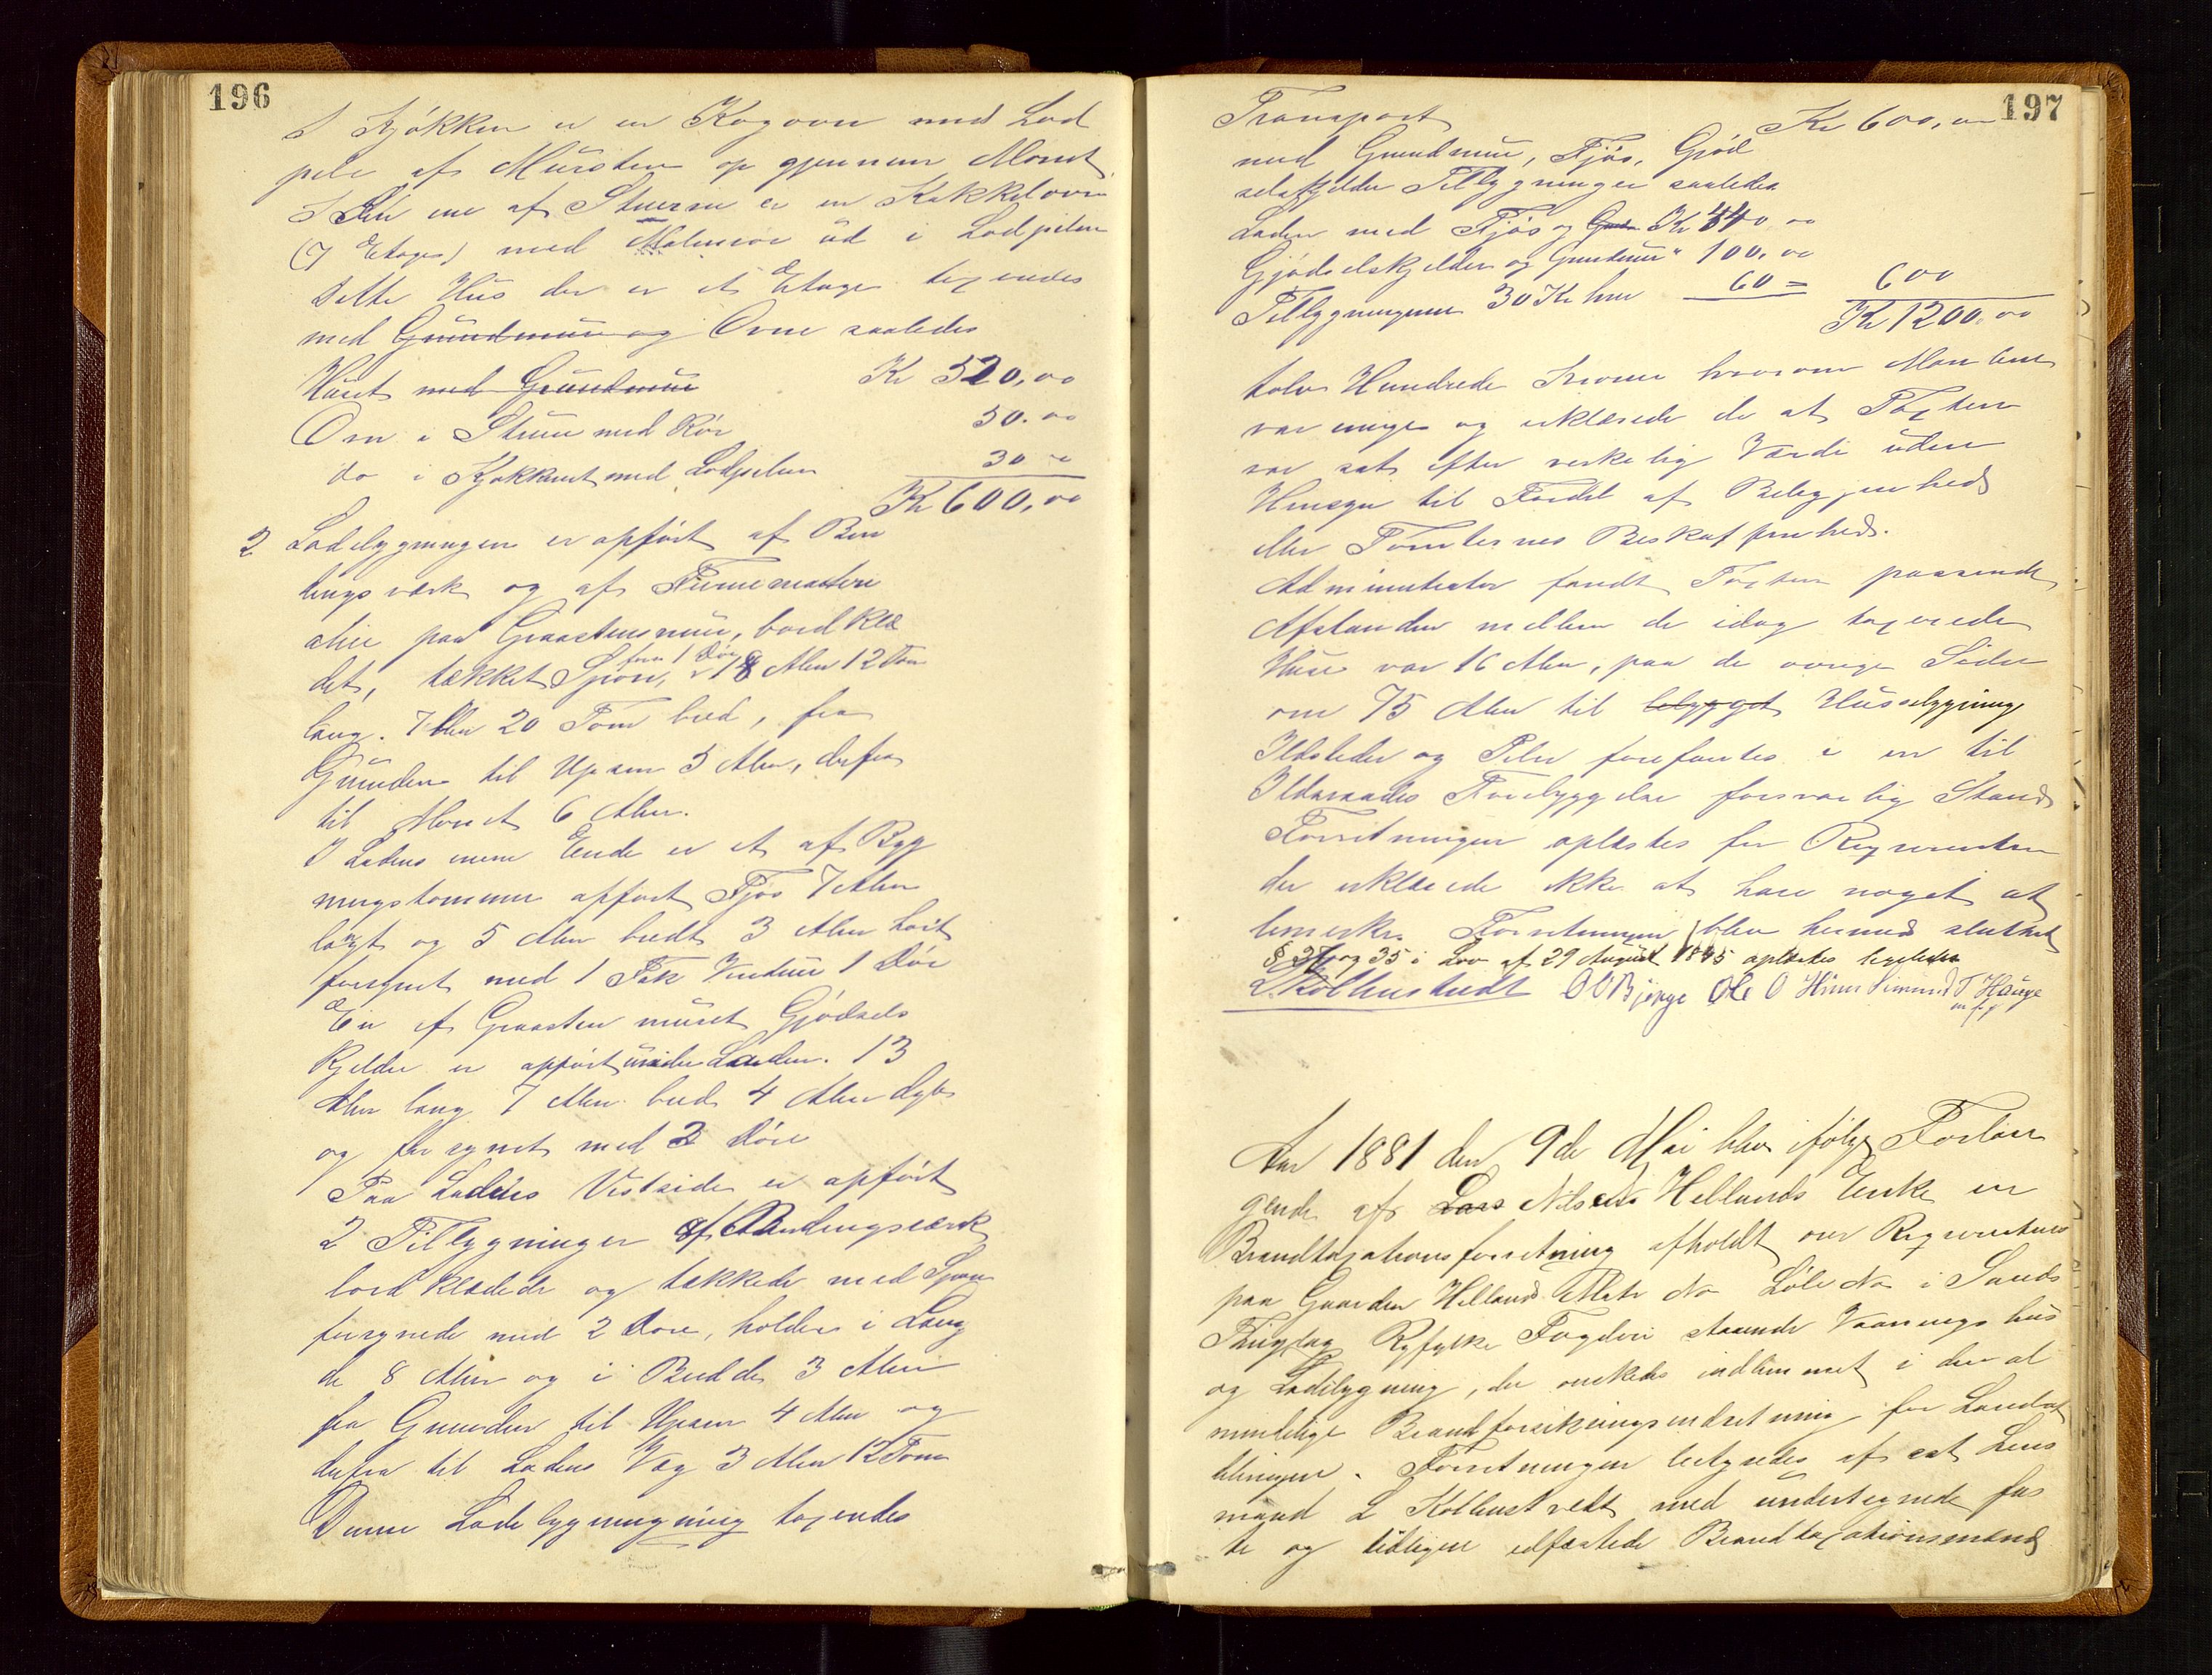 196
I Kjøkken er en Kogovn med Lod
pibe af Mursten op gjennem Mønet
I den ene af Stuerne er en Kakkelovn
(7 Etages) med Malmrør ud i Lodpiben
Dette Hus der er et Etage taxeredes
med Grundmur og Ovne saaledes
Huset med Grundmur Kr 520,00
Ovn i Stuen med Rør 50.00
do i Kjøkkenet med Lodpiben 30 "
Kr 600,00
2 Ladebygningen er opført af Bin
dingsværk og af Furumateri
alier paa Graastensmur, bordklæ
det, tækket Spon, fors. 1 Dør 18 Alen 12 Tom
lang. 7 Alen 20 Tom bred, fra
Grunden til Upsen 5 Alen, derfra
til Mønet 6 Alen.
I Ladens ene Ende er et af Byg
ningstømmer opført Fjøs 7 Alen
langt og 5 Alen bredt 3 Alen høit
forsynet med 1 Fak Vindue 1 Dør
En af Graasten muret Gjødsels
kjelder er opført under Laden. 13
Alen lang 7 Alen bred 4 Alen dyb
og forsynet med 2 Døre
Paa Ladens Vestside er opført
2 Tilbygninger af Bindingsværk
bordklædede og tækkede med Spon
forsynede med 2 Døre, holder i Læng
de 8 Alen og i Bredde 3 Alen
fra Grunden til Upsen 4 Alen og
derfra til Ladens Væg 3 Alen 12 Tom
Denne Ladebygningning taxeredes
197
Transport Kr 600,00
med Grundmur, Fjøs, Gjød
selskjelder Tilbygninger saaledes
Laden med Fjøs og Kr 440,00
Gjødselskjelder og Grundmur " 100,00
Tilbygningerne 30 Kr hver 60 = 600
Kr 1200.00
tolv Hundrede Kroner hvorom Mændene
var enige og erklærede de at Taxten
var sat efter verkelig Værdi uden
Hensyn til Fordel af Beliggenhed
eller Tomternes Beskaffenhed.
Administrator fandt Taxten passende
Afstanden mellem de idag taxerede
Huse var 16 Alen, paa de øvrige Sider
om 75 Alen til bebygget Husebygning
Ildsteder og Piber forefantes i en til
Ildsvaades Forebyggelse forsvarlig Stand
Forretningen oplæstes for Requirenten
der erklærede ikke at have noget at
bemerke. Forretningen blev hermed sluttet
§ 34 og 35 i Lov af 29 August 1845 oplæstes ligeledes
L Kolbenstvedt O O Bjørge Ole O Hiim Simund T Hauge
m f p
Aar 1881 den 9de Mai blev ifølge Forlan
gende af Lars Nilsens Hellands Enke en
Brandtaxationsforretning afholdt over Requirentens
paa Gaarden Helland Matr No Løbe No i Sands
Thinglag Ryfylke Fogderi staaende Vaaningshus
og Ladebygning, der ønskedes indlemmet i den al
mindelige Brandforsikringsindretning for Landets
bygninger. Forretningen bestyredes af sat Lens
mand L Kolbenstvedt med undertegnede fas
te og tidligere edfæstede Brandtaxationsmænd